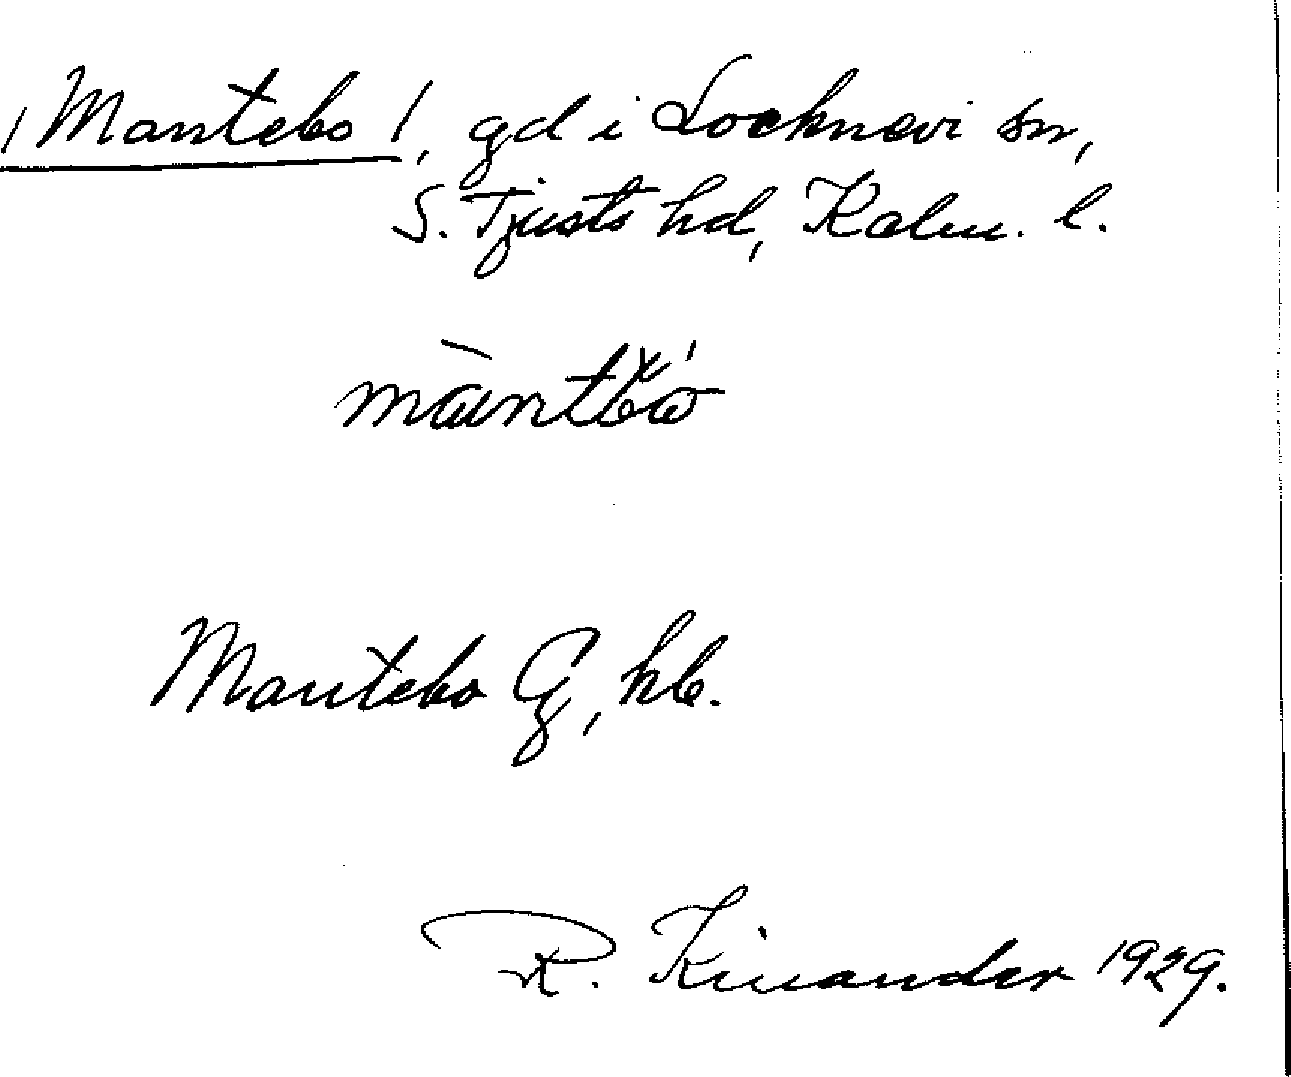 /Mantebo/, gd i Locknevi sn,
S. Tjusts hd, Kalm. l.
Mantebo G, hb.
R. Kinander 1929.